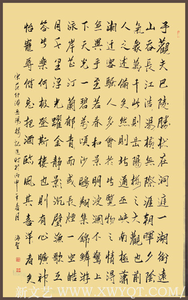 予觀夫巴陵勝狀在洞庭一湖銜遠
山吞長江浩浩湯湯橫無際涯朝暉夕陰
氣象萬千此則岳陽樓之大觀也前
人之述備矣然則北通巫峽南極瀟
湘遷客騷人多會於此覽物之情得
無異乎至若春和景明波瀾不驚
上下天光一碧萬頃沙鷗翔集錦鱗
游泳岸芷汀蘭郁郁青青而或長
煙一空皓月千里浮光躍金靜影沉璧漁歌
互答此樂何極登斯樓也則有心曠神
怡寵辱偕忘把酒臨風其喜洋洋者矣
宋范仲淹岳陽樓記